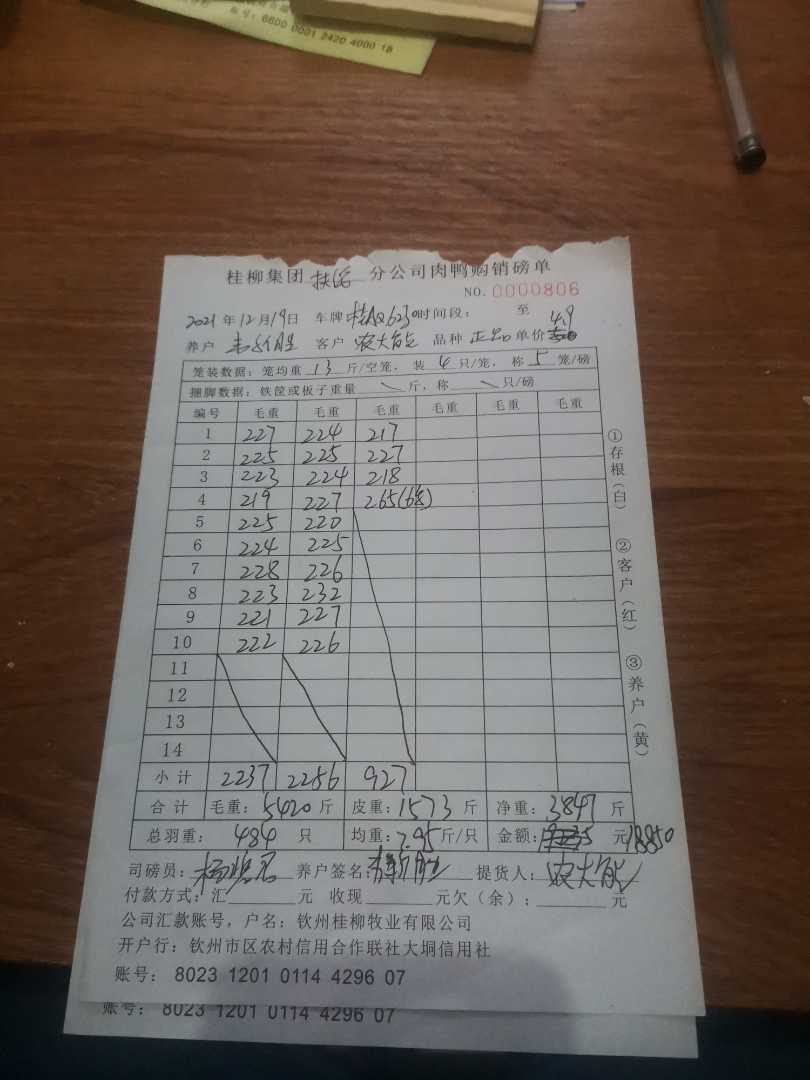 账号：6600 0001 2420 4000 18
桂柳集团 分公司肉鸭购销磅单
NO. 0000806
2021年12月19日 车牌 时间段： 至
养户 客户 农大 品种 正品 单价 4.9
笼装数据：笼均重 13 斤/空笼，装 4 只/笼，称 5 笼/磅
捆脚数据：铁筐或板子重量 斤，称 只/磅
编号 毛重 毛重 毛重 毛重 毛重 毛重
1 227 224 217
2 225 225 227
3 223 224 218
4 219 227 265(6笼)
5 225 220
6 224 225
7 228 226
8 223 232
9 221 227
10 222 226
11
12
13
14
小计 2237 2256 927
合计 毛重：5420 斤 皮重：1573 斤 净重：3847 斤
总羽重：484 只 均重：7.95 斤/只 金额： 元 18850
司磅员： 养户签名： 提货人：农大
付款方式：汇 元 收现 元欠（余）： 元
公司汇款账号，户名：钦州桂柳牧业有限公司
开户行：钦州市区农村信用合作联社大垌信用社
账号：8023 1201 0114 4296 07
账号：8023 1201 0114 4296 07
①存根（白）
②客户（红）
③养户（黄）